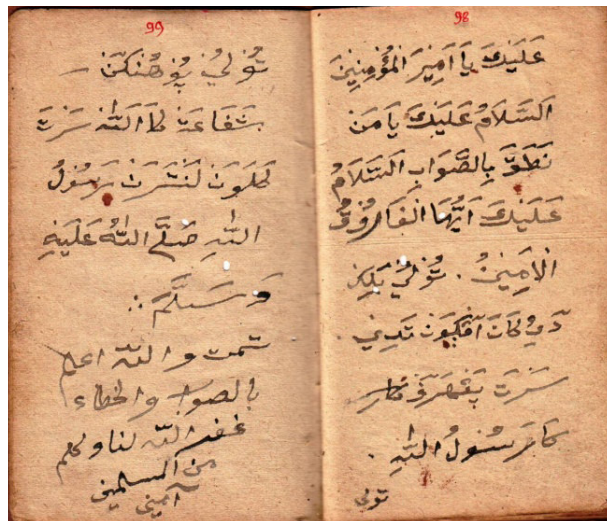 98
عَلَيْكَ يَا اَمِيْرَ الْمُؤْمِنِيْنَ
اَلسَّلَامُ عَلَيْكَ يَا مَنْ
نَطَقَ بِالصَّوَابِ اَلسَّلَامُ
عَلَيْكَ اَيُّهَا الْفَارُوْقُ
الْاَمِيْنُ . تُوْلِيْ
تَدِيْ .
سَرْتَ
رَسُوْلُ اللّٰهِ .
تولي
99
تُوْلِيْ فُوْهُنْكَنْ
شَفَاعَةْ كَاَللّٰهْ سَرْتَ
لَنْتَرَنْ رَسُوْلُ
اللّٰهِ صَلَّى اللّٰهُ عَلَيْهِ
وَسَلَّمَ ∴
تمت والله اعلم
بالصواب والخطاء
غفر الله لنا ولهم
من المسلمين
آمين